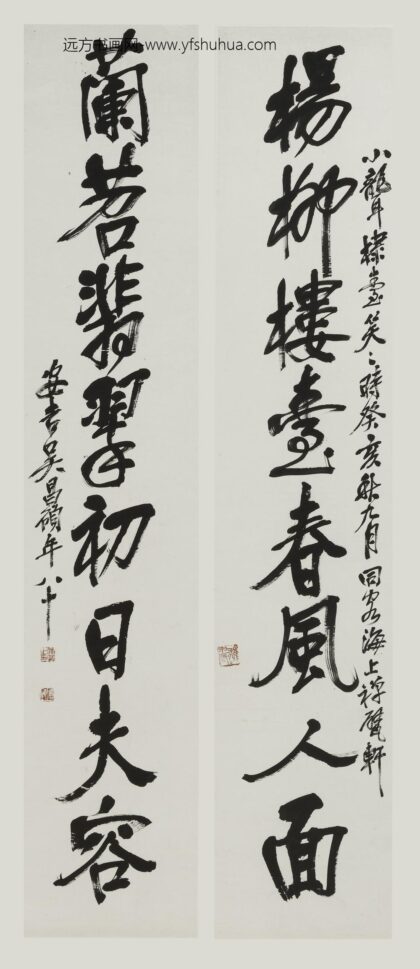 远方书画网-www.yfshuhua.com
小龍耳 臺笑〻時癸亥秋九月同客海上禪甓軒
楊柳樓臺春風人面
蘭苕翡翠初日夫容
安吉吳昌碩年八十